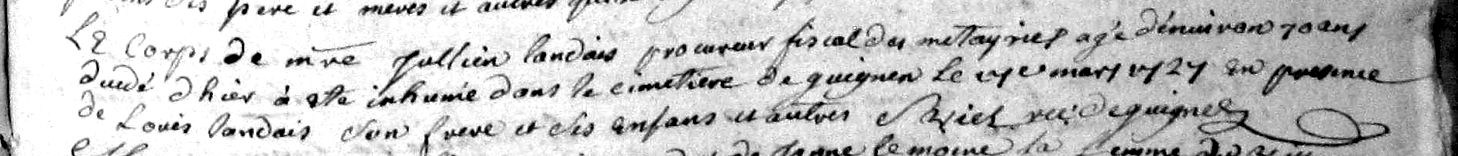 pere et meres et autres
Le Corps de mre Jullien landais procureur fiscal des metayries agé d'enuiron 70 ans
dvcedé d hier à ete inhumé dans le cimetiere de guignen le 17e mars 1727 en presence
de Louis landais son frere et ses enfans et autres rec de guignen
de le moine la femme